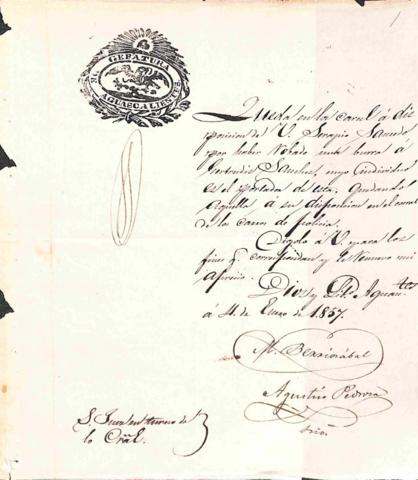 GEFATURA
DE AGUASCALIENTES
Queda en la carcel á dis
posicion de V. Serapio Saucedo
por haber robado una burra á
Gertrudis Sanchez, cuyo individuo
es el portador de esta, quedando
aquella á su disposicion en el corral
de la casa de policia.
Digolo á V. para los
fines q. correspondan y le renuevo mi
aprecio.
Dios y Lib. Aguas.tes
á 4. de Enero de 1857.
M. Berriozábal
Agustin Pedroza
Srio.
S. Juez en turno de
lo Crãl.